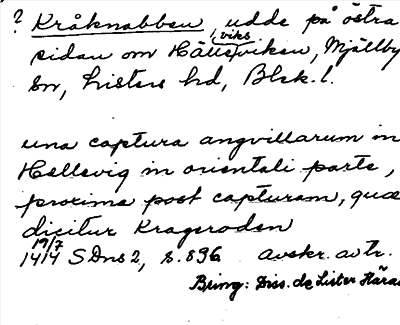 ? Kråknabben, udde på östra
sidan om Hälleviks viken, Mjällby
sn, Listers hd, Blek. l.
una captura angvillarum in
Hellevig in orientali parte,
proxima post capturam, quæ
dicitur Krageroden
19/7
1414 SDns 2, s. 896 avskr. av tr.
Bring: Diss. de Lister Härad